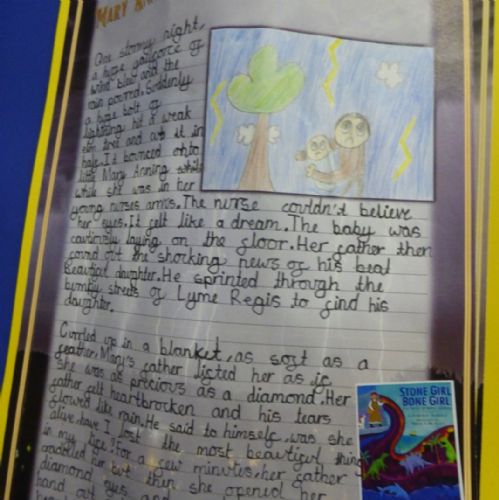 MARY ANN
One stormy night,
a huge galeforce of
wind blew and the
rain poured. Suddenly
a huge bolt of
lightning hit a weak
elm tree and cut it in
half. It bounced onto
little Mary Anning while
while she was in her
young nurses arms. The nurse couldn't believe
her eyes. It felt like a dream. The baby was
cautiously laying on the floor. Her father then
found out the shocking news of his beal
Beautiful daughter. He sprinted through the
bumpy streets of Lyme Regis to find his
daughter.
Curled up in a blanket, as soft as a
feather, Mary's father lifted her as if
she was as precious as a diamond. Her
father felt heartbroken and his tears
flowed like rain. He said to himself, was she
alive, have I lost the most beautiful thing
in my life. For a few minutes, her father
craddled her but then she opened her
diamond eyes and
hand out
STONE GIRL
BONE GIRL